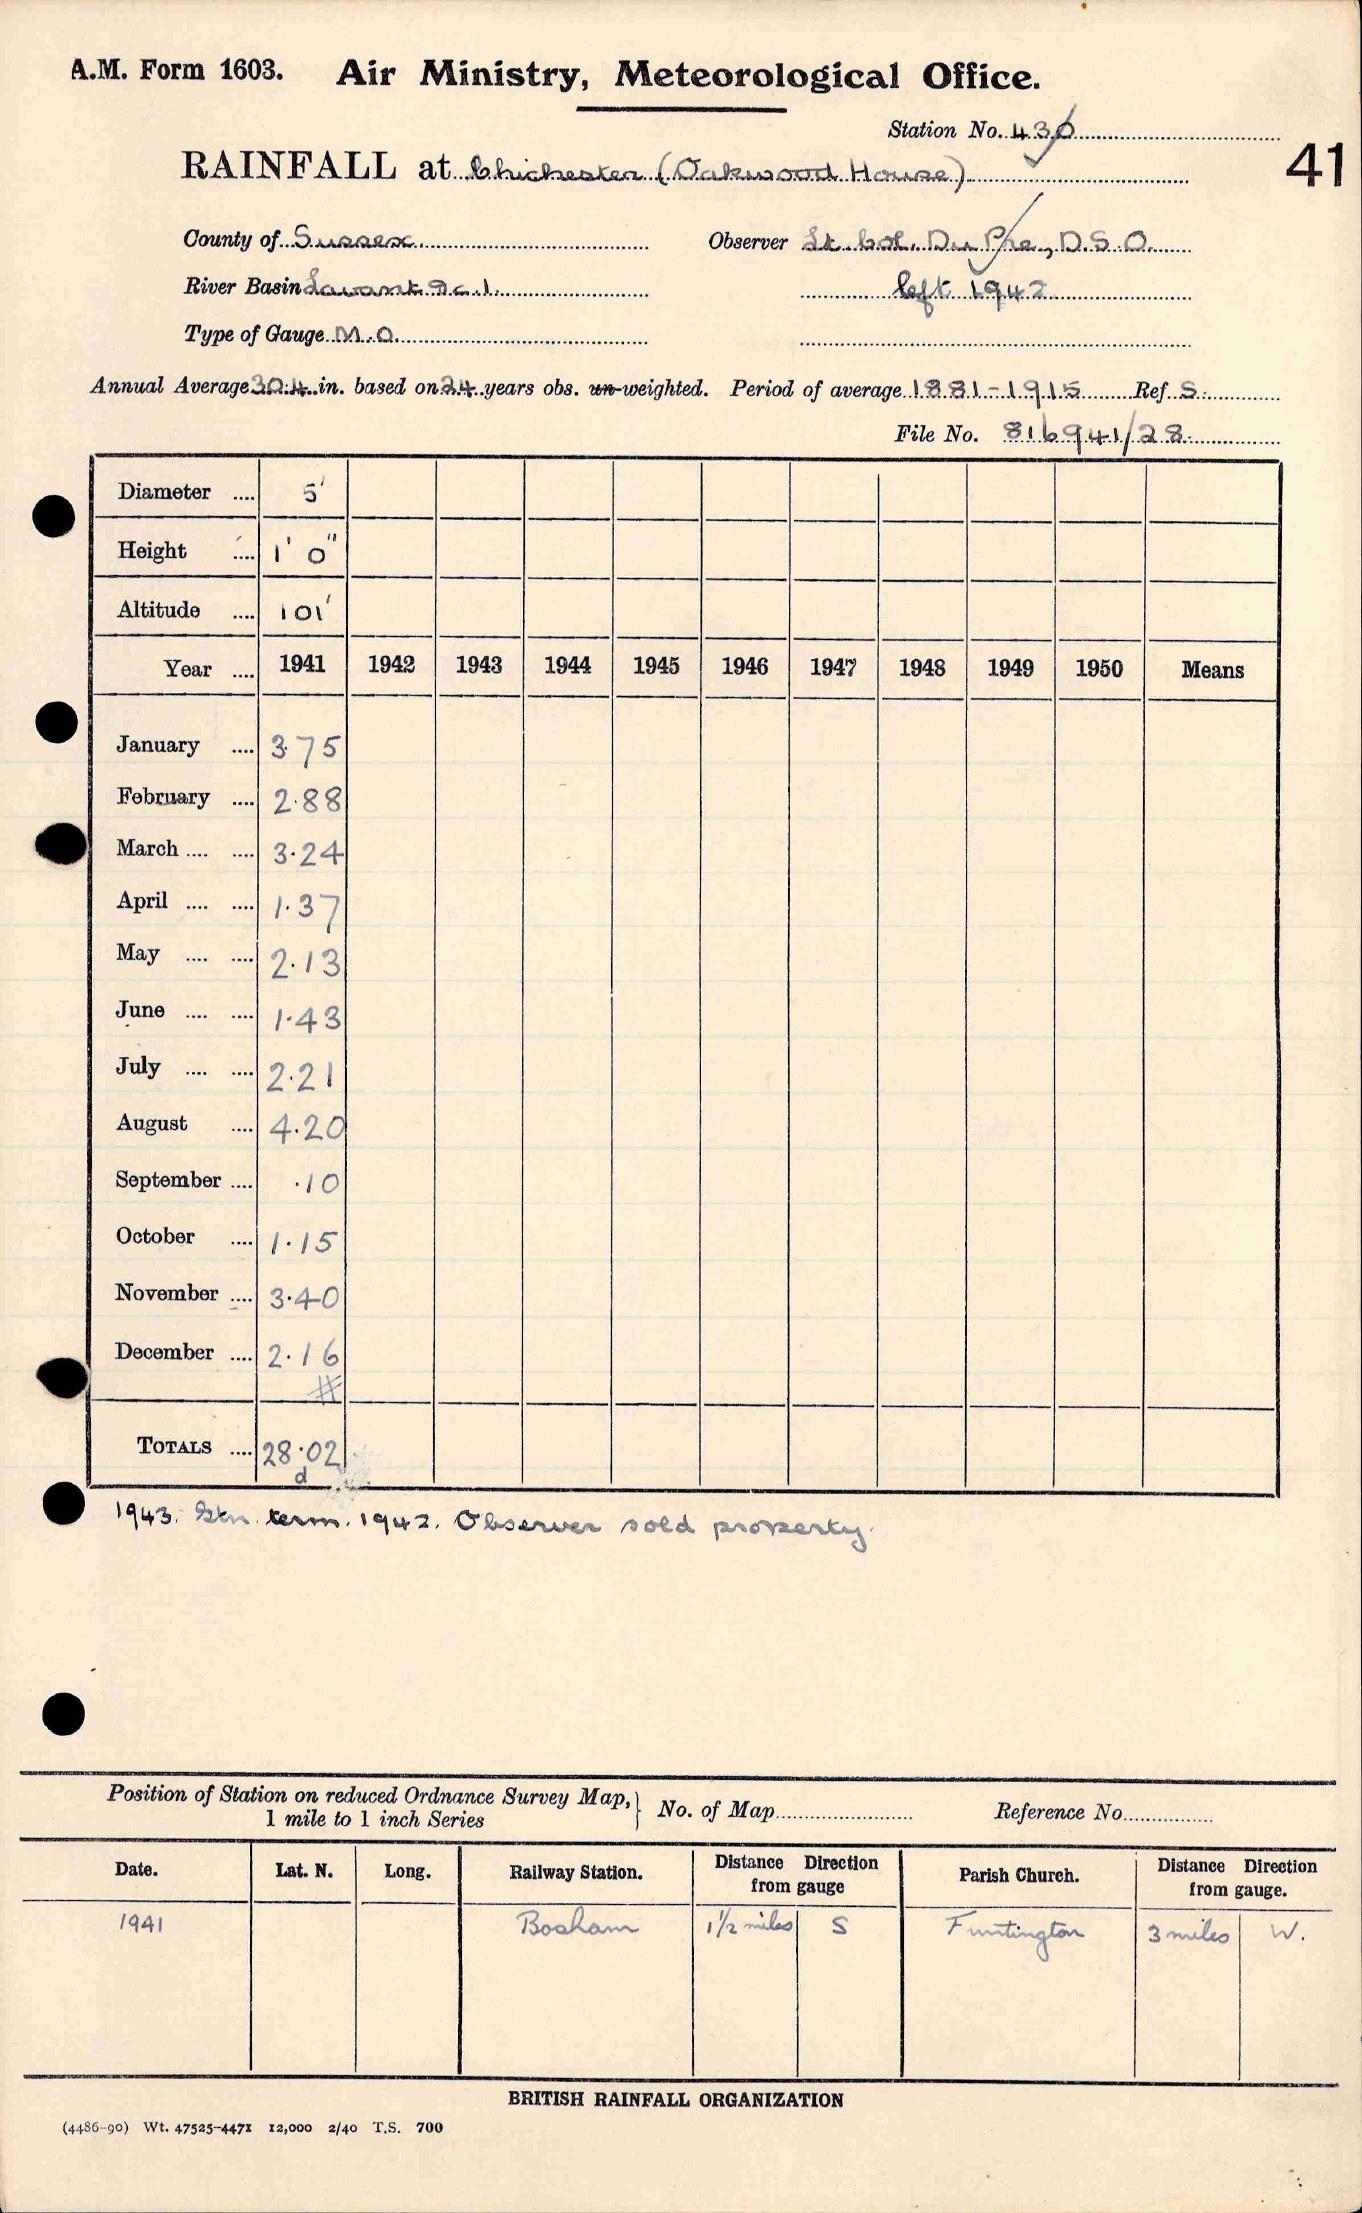 A.M. Form 1603. Air Ministry, Meteorological Office.
Station No. 430
41
RAINFALL at Chichester (Oakwood House)
County of Sussex Observer Lt. Col. Du Pre, D.S.O.
River Basin Lavant &c. 1. left 1942
Type of Gauge M.O.
Annual Average 30.4 in. based on 24 years obs. un-weighted. Period of average 1881-1915 Ref. S.
File No. 816941/28.
Diameter .... 5'
Height .... 1' 0"
Altitude .... 101'
Year .... 1941 1942 1943 1944 1945 1946 1947 1948 1949 1950 Means
January .... 3.75
February .... 2.88
March .... .... 3.24
April .... .... 1.37
May .... .... 2.13
June .... .... 1.43
July .... .... 2.21
August .... 4.20
September .... .10
October .... 1.15
November .... 3.40
December .... 2.16
#
TOTALS .... 28.02
d
1943. Stn. term. 1942. Observer sold property.
Position of Station on reduced Ordnance Survey Map, } No. of Map Reference No.
1 mile to 1 inch Series
Date. Lat. N. Long. Railway Station. Distance Direction from gauge Parish Church. Distance Direction from gauge.
1941 Bosham 1 1/2 miles S Funtington 3 miles W.
BRITISH RAINFALL ORGANIZATION
(4486-90) Wt. 47525-4471 12,000 2/40 T.S. 700